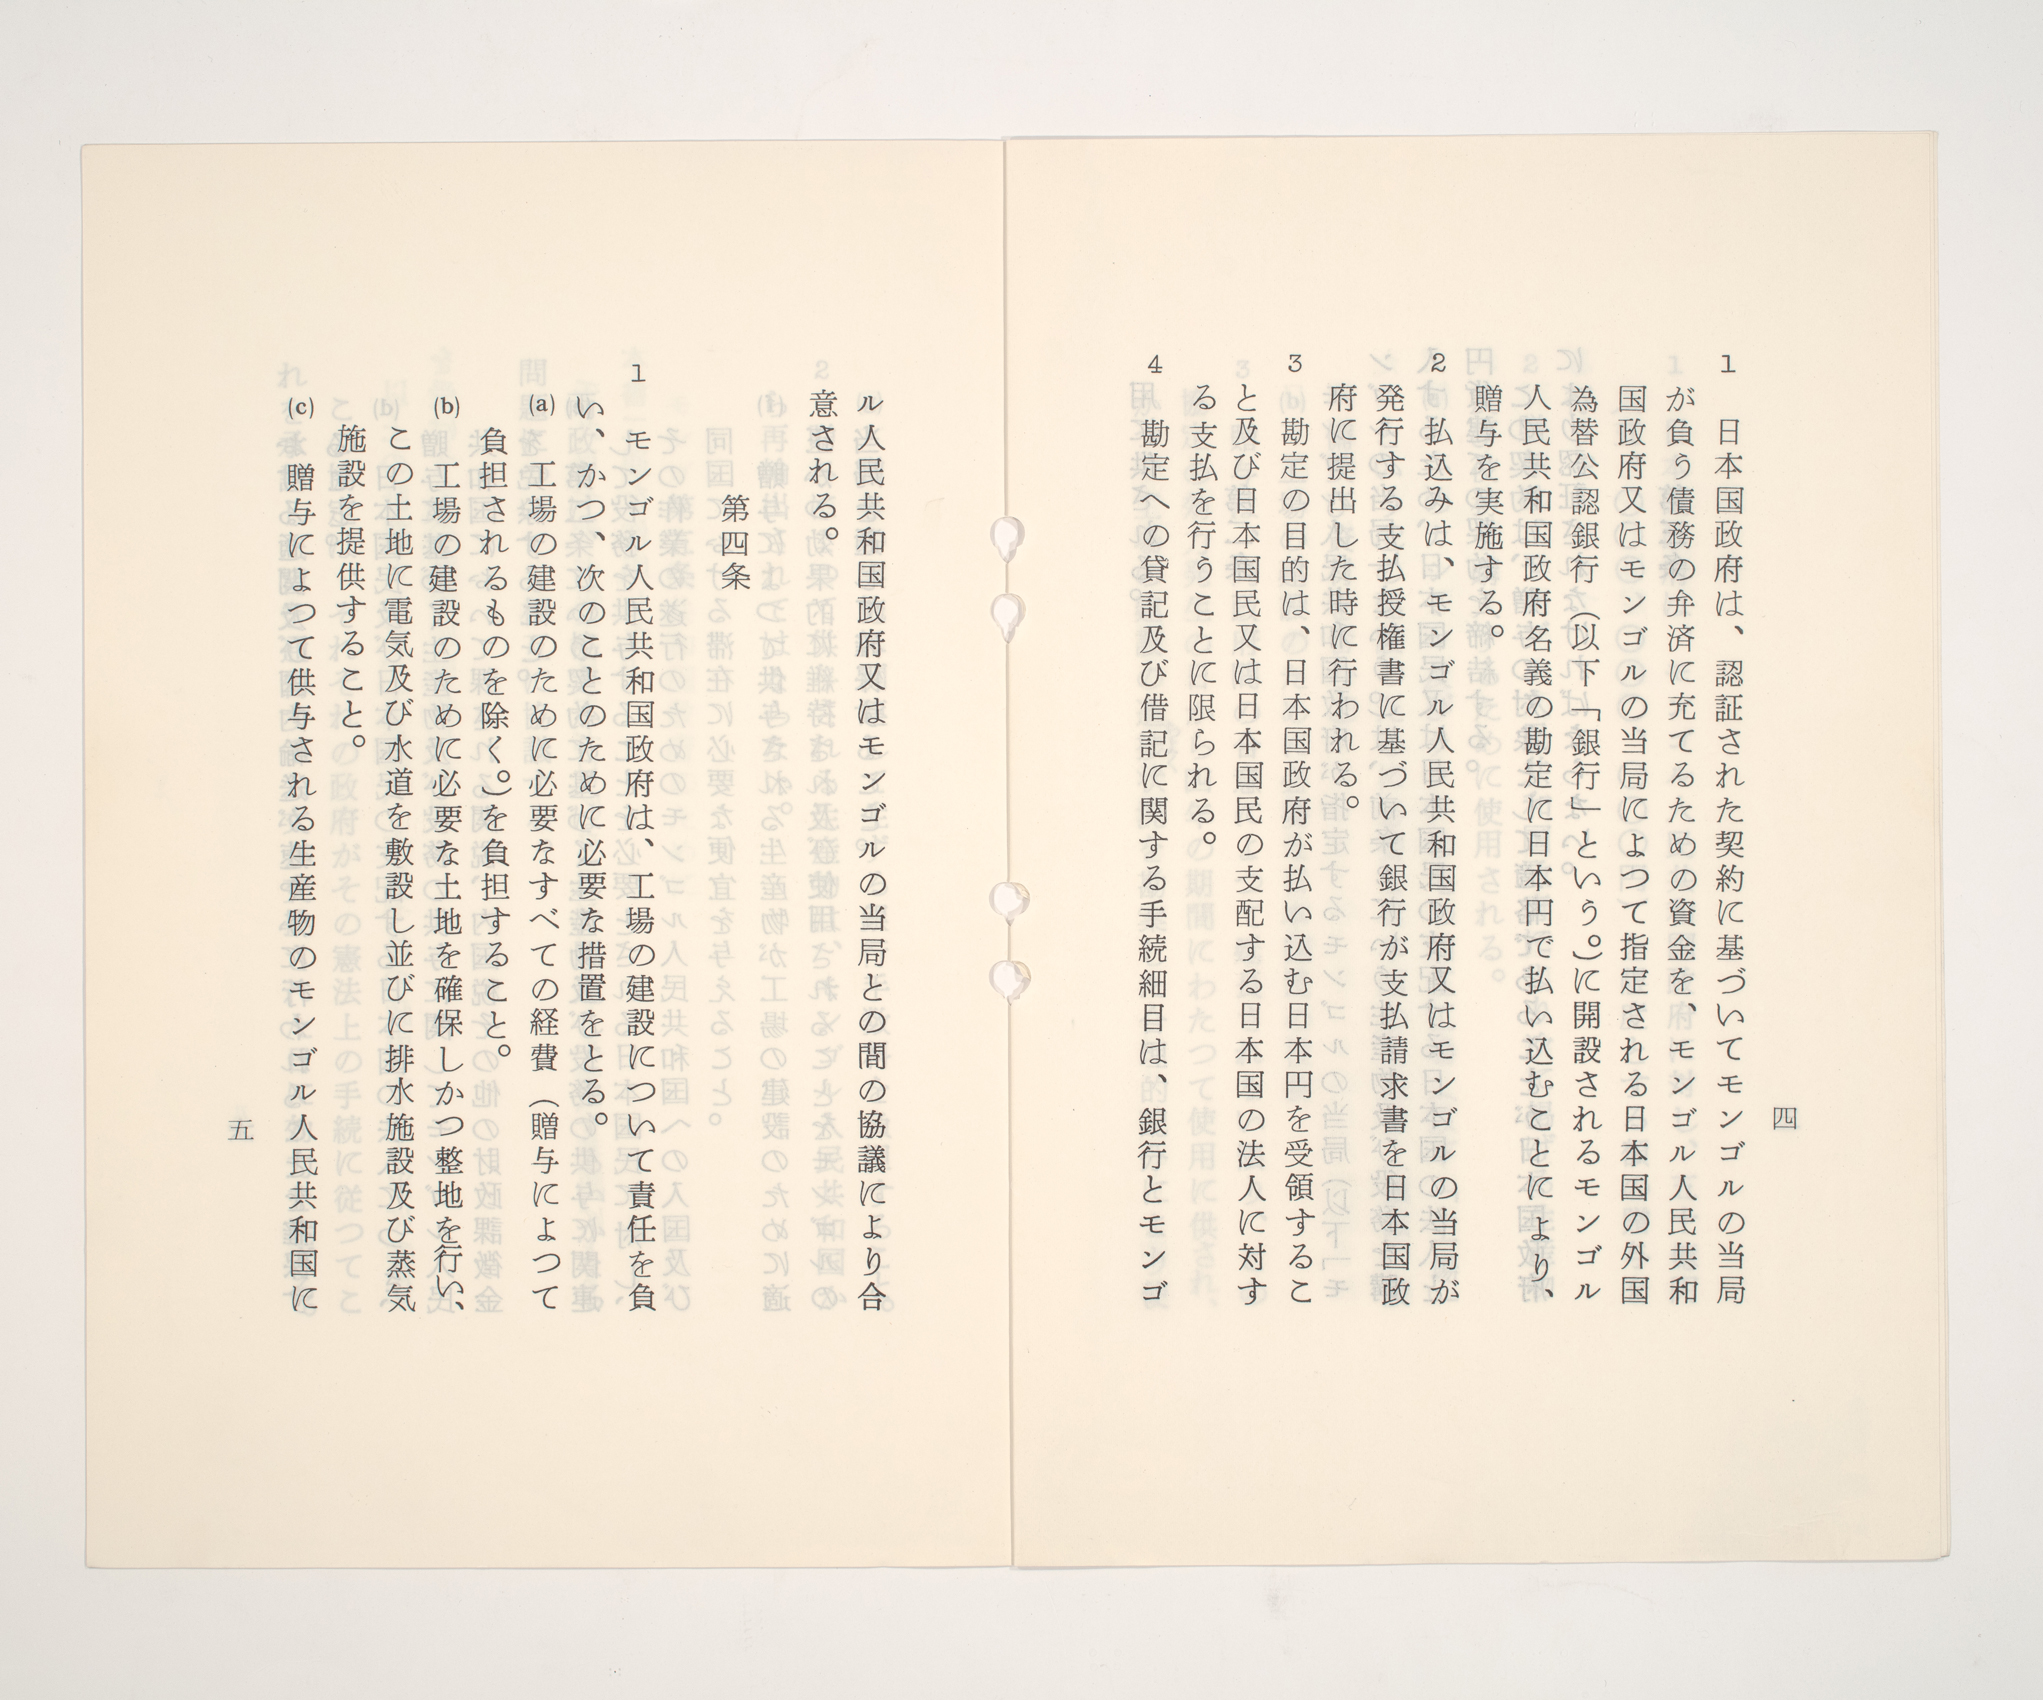 四
1　日本国政府は、認証された契約に基づいてモンゴルの当局
が負う債務の弁済に充てるための資金を、モンゴル人民共和
国政府又はモンゴルの当局によつて指定される日本国の外国
為替公認銀行（以下「銀行」という。）に開設されるモンゴル
人民共和国政府名義の勘定に日本円で払い込むことにより、
贈与を実施する。
2　払込みは、モンゴル人民共和国政府又はモンゴルの当局が
発行する支払授権書に基づいて銀行が支払請求書を日本国政
府に提出した時に行われる。
3　勘定の目的は、日本国政府が払い込む日本円を受領するこ
と及び日本国民又は日本国民の支配する日本国の法人に対す
る支払を行うことに限られる。
4　勘定への貸記及び借記に関する手続細目は、銀行とモンゴ
ル人民共和国政府又はモンゴルの当局との間の協議により合
意される。
第四条
1　モンゴル人民共和国政府は、工場の建設について責任を負
い、かつ、次のことのために必要な措置をとる。
(a)　工場の建設のために必要なすべての経費（贈与によつて
負担されるものを除く。）を負担すること。
(b)　工場の建設のために必要な土地を確保しかつ整地を行い、
この土地に電気及び水道を敷設し並びに排水施設及び蒸気
施設を提供すること。
(c)　贈与によつて供与される生産物のモンゴル人民共和国に
五